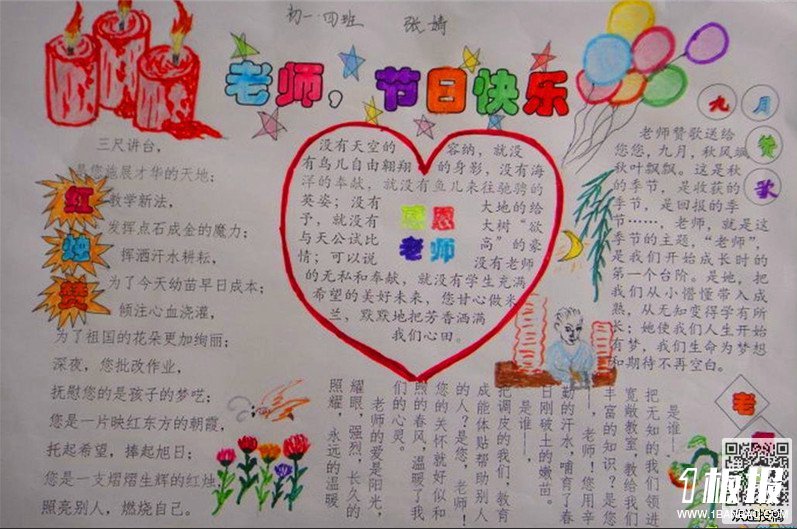 初一·四班 张婧
老师，节日快乐
三尺讲台，
是您施展才华的天地；
教学新法，
发挥点石成金的魔力；
挥洒汗水耕耘，
为了今天幼苗早日成本；
倾注心血浇灌，
为了祖国的花朵更加绚丽；
深夜，您批改作业，
抚慰您的是孩子的梦呓；
您是一片映红东方的朝霞，
托起希望，捧起旭日；
您是一支熠熠生辉的红烛，
照亮别人，燃烧自己。
红
烛
赞
没有天空的容纳，就没
有鸟儿自由翱翔的身影，没有海
洋的奉献，就没有鱼儿来往驰骋的
英姿；没有大地的给
予，就没有大树“欲
与天公试比高”的豪
情；可以说没有老师
的无私和奉献，就没有学生充满
希望的美好未来，您甘心做米
兰，默默地把芳香洒满
我们心田。
感恩
老师
九
月
赞
歌
老师赞歌送给
您您，九月，秋风飒
秋叶飘飘。这是秋
的季节，是收获的
季节，是回报的季
节……，老师，就是这
季节的主题，“老师”，
是我们开始成长时的
第一个台阶。是她，把
我们从小懵懂带入成
熟，从无知变得学有所
长；她使我们人生开始
有梦，我们生命为梦想
和期待不再空白。
老
是谁——，
把无知的我们领进
宽敞教室，教给我们
丰富的知识？是您
——，老师！您用辛
勤的汗水，哺育了春
日刚破土的嫩苗。
是谁——，
把调皮的我们，教育
成能体贴帮助别人
的人？是您，老师！
您的关怀就好似和
煦的春风，温暖了我
们的心灵。
老师的爱是阳光，
耀眼，强烈，长久的
照耀，永远的温暖
1板报
WWW.1BANBAO.COM